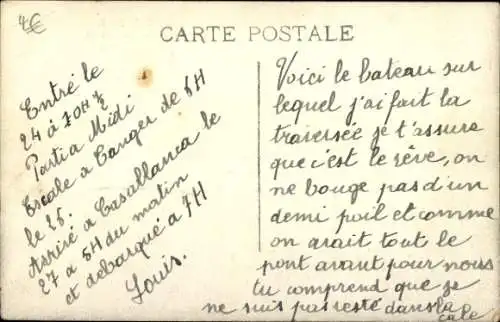 4€
CARTE POSTALE
Entré le
24 à 10H
Parti a Midi
Escale a Tanger de 6H
le 25.
Arrivé a Casablanca le
27 a 5H du matin
et debarqué a 7H
Louis.
Voici le bateau sur
lequel j'ai fait la
traversée je t'assure
que c'est le rêve, on
ne bouge pas d'un
demi poil et comme
on avait tout le
pont avant pour nous
tu comprend que je
ne suis pas resté dans la
cale